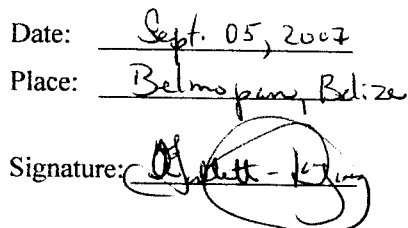 Date: Sept. 05, 2007
Place: Belmopan, Belize
Signature: